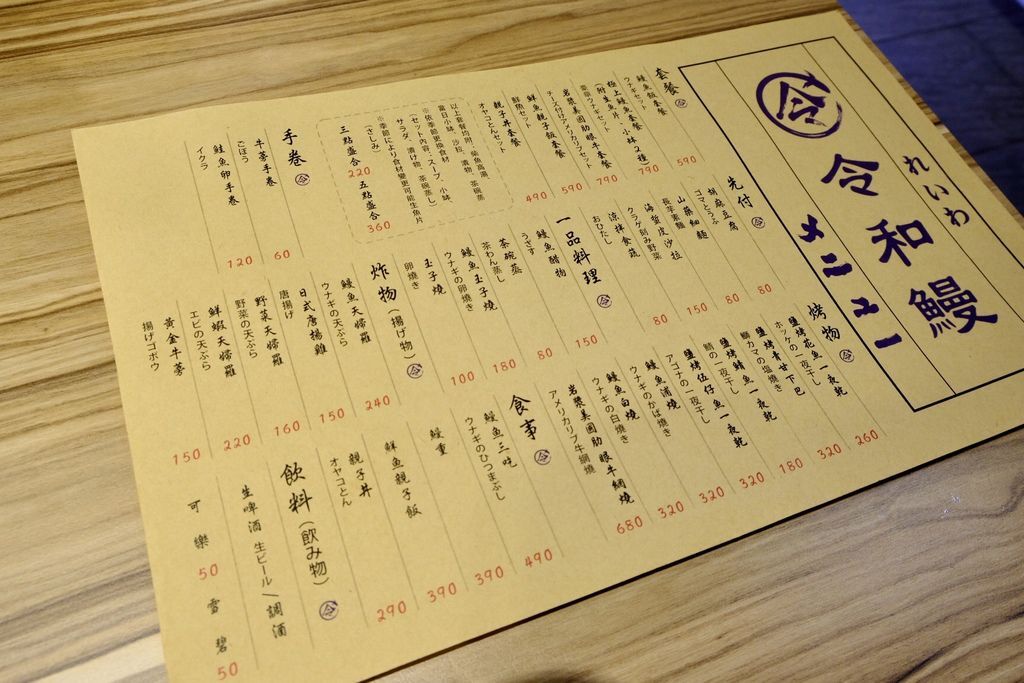 令
れいわ
令和鰻
メニュー
套餐 令
鰻魚飯套餐
ウナギセット
590
極上鰻魚套餐
(附生魚片、小鉢2種)
豪華ウナギセット
790
岩漿美國肋眼牛套餐
チーズ付けアメリカリブセット
790
鮮魚親子飯套餐
鮮魚セット
590
親子丼套餐
オヤコとんセット
490
以上套餐均附、柴魚高湯、
當日小鉢、沙拉、漬物、茶碗蒸
※依季節更換食材
(セット内容、スープ、小鉢、
サラダ、漬け物、茶碗蒸し)
※季節により食材變更可能生魚片
(さしみ)
三點盛合 220 五點盛合 360
手卷 令
牛蒡手卷
ごぼう
60
鮭魚卵手卷
イクラ
120
先付 令
胡麻豆腐
ゴマとうふ
80
山藥細麵
長芋素麺
80
海蜇皮沙拉
クラゲ刻み野菜
150
涼拌食蔬
おひたし
80
一品料理 令
鰻魚醋物
うざす
150
茶碗蒸
茶わん蒸し
80
鰻魚玉子燒
ウナギの卵焼き
180
玉子燒
卵焼き
100
炸物(揚げ物) 令
鰻魚天婦羅
ウナギの天ぷら
240
日式唐揚雞
唐揚げ
150
野菜天婦羅
野菜の天ぷら
160
鮮蝦天婦羅
エビの天ぷら
220
黃金牛蒡
揚げゴボウ
150
烤物 令
鹽烤花魚一夜乾
ホッケの一夜干し
260
鹽烤青甘下巴
鰤カマの塩焼き
320
鹽烤鯖魚一夜乾
鯖の一夜干し
180
鹽烤伍仔魚一夜乾
アコナの一夜干し
320
鰻魚蒲燒
ウナギのかば焼き
320
鰻魚白燒
ウナギの白焼き
320
岩漿美國肋眼牛網燒
アメリカリブ牛網燒
680
食事 令
鰻魚三吃
ウナギのひつまぶし
490
鰻重
390
鮮魚親子飯
390
親子丼
オヤコとん
290
飲料(飲み物) 令
生啤酒 生ビール/調酒
可樂 50 雪碧 50